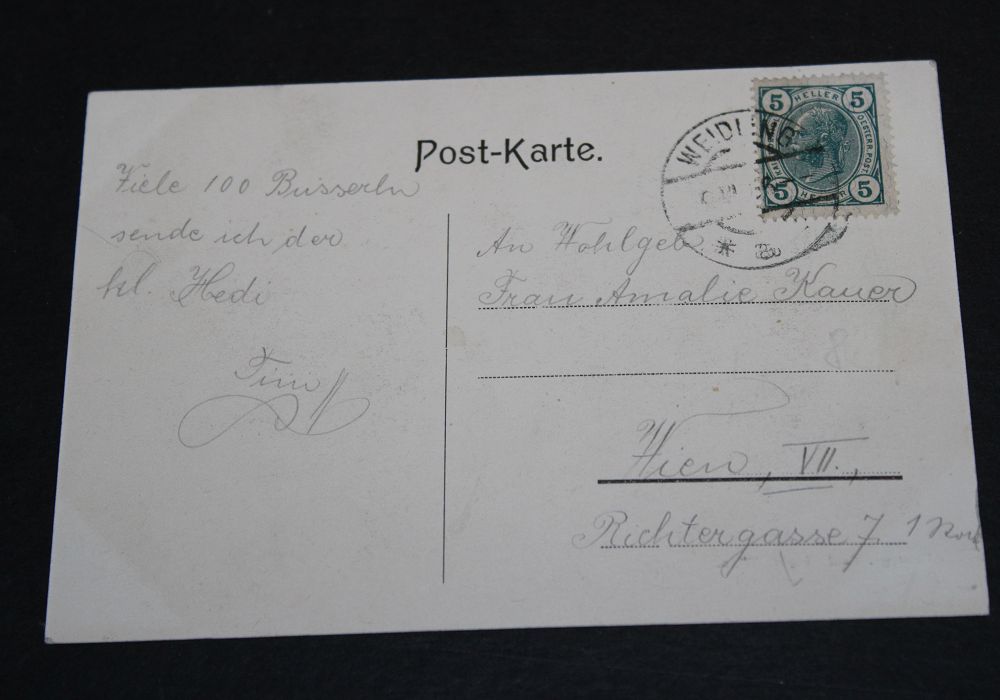 Post-Karte.
Viele 100 Busserln
sende ich der
kl. Hedi
An Wohlgeb.
Frau Amalie Kauer
Wien, VII.,
Richtergasse 7. 1
WEIDLING
* a
5 HELLER 5
OESTERR. POST
5 HELLER 5